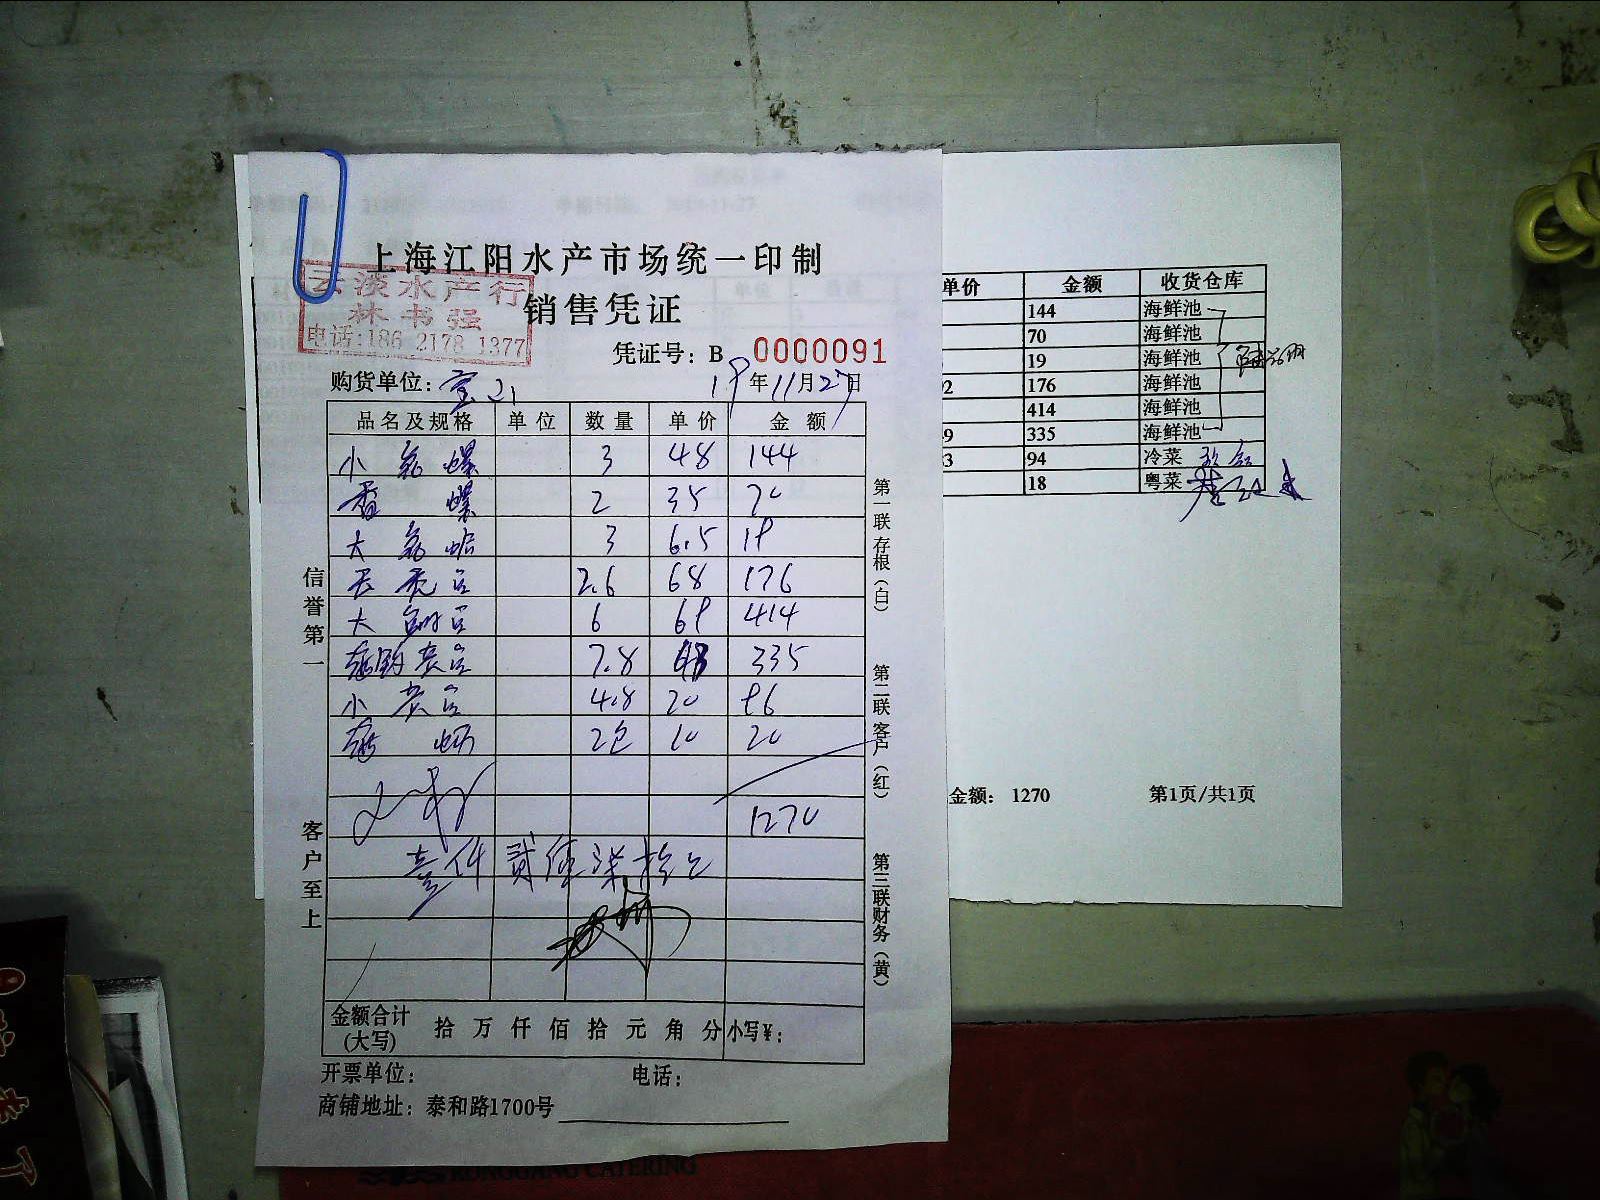 上海江阳水产市场统一印制
云淡水产行
林书强
电话:186 2178 1377
销售凭证
凭证号：B 0000091
购货单位：宝山 19年11月27日
品名及规格 单位 数量 单价 金额
小 螺 3 48 144
香螺 2 35 70
大 3 6.5 19
2.6 68 176
大 6 69 414
7.8 43 335
小 4.8 20 96
2包 10 20
1270
壹仟贰佰柒拾元
金额合计
(大写) 拾 万 仟 佰 拾 元 角 分 小写¥：
开票单位： 电话：
商铺地址：泰和路1700号
信誉第一
客户至上
第一联存根（白）
第二联客户（红）
第三联财务（黄）
单价 金额 收货仓库
144 海鲜池
70 海鲜池
19 海鲜池
176 海鲜池
414 海鲜池
335 海鲜池
94 冷菜
18 粤菜
金额： 1270 第1页/共1页
RONGGANG CATERING